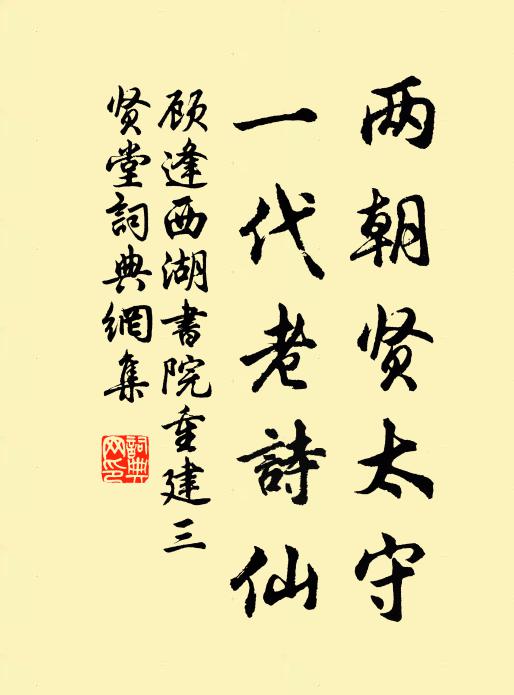 两朝贤太守
一代老詩仙
顾逢西湖書院重建三
贤堂詞典網集
詞典
网印